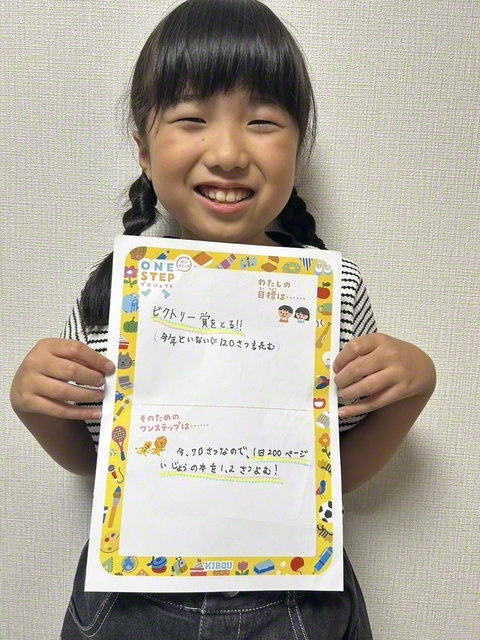 ONE
STEP
プロジェクト
わたしの
目標は……
ビクトリー賞をとる!!
(今年どいないに120さつ読む)
そのための
ワンステップは……
今、70さつなので、1日200ページ
いじょうの本を1、2さつよむ!
KIBOU